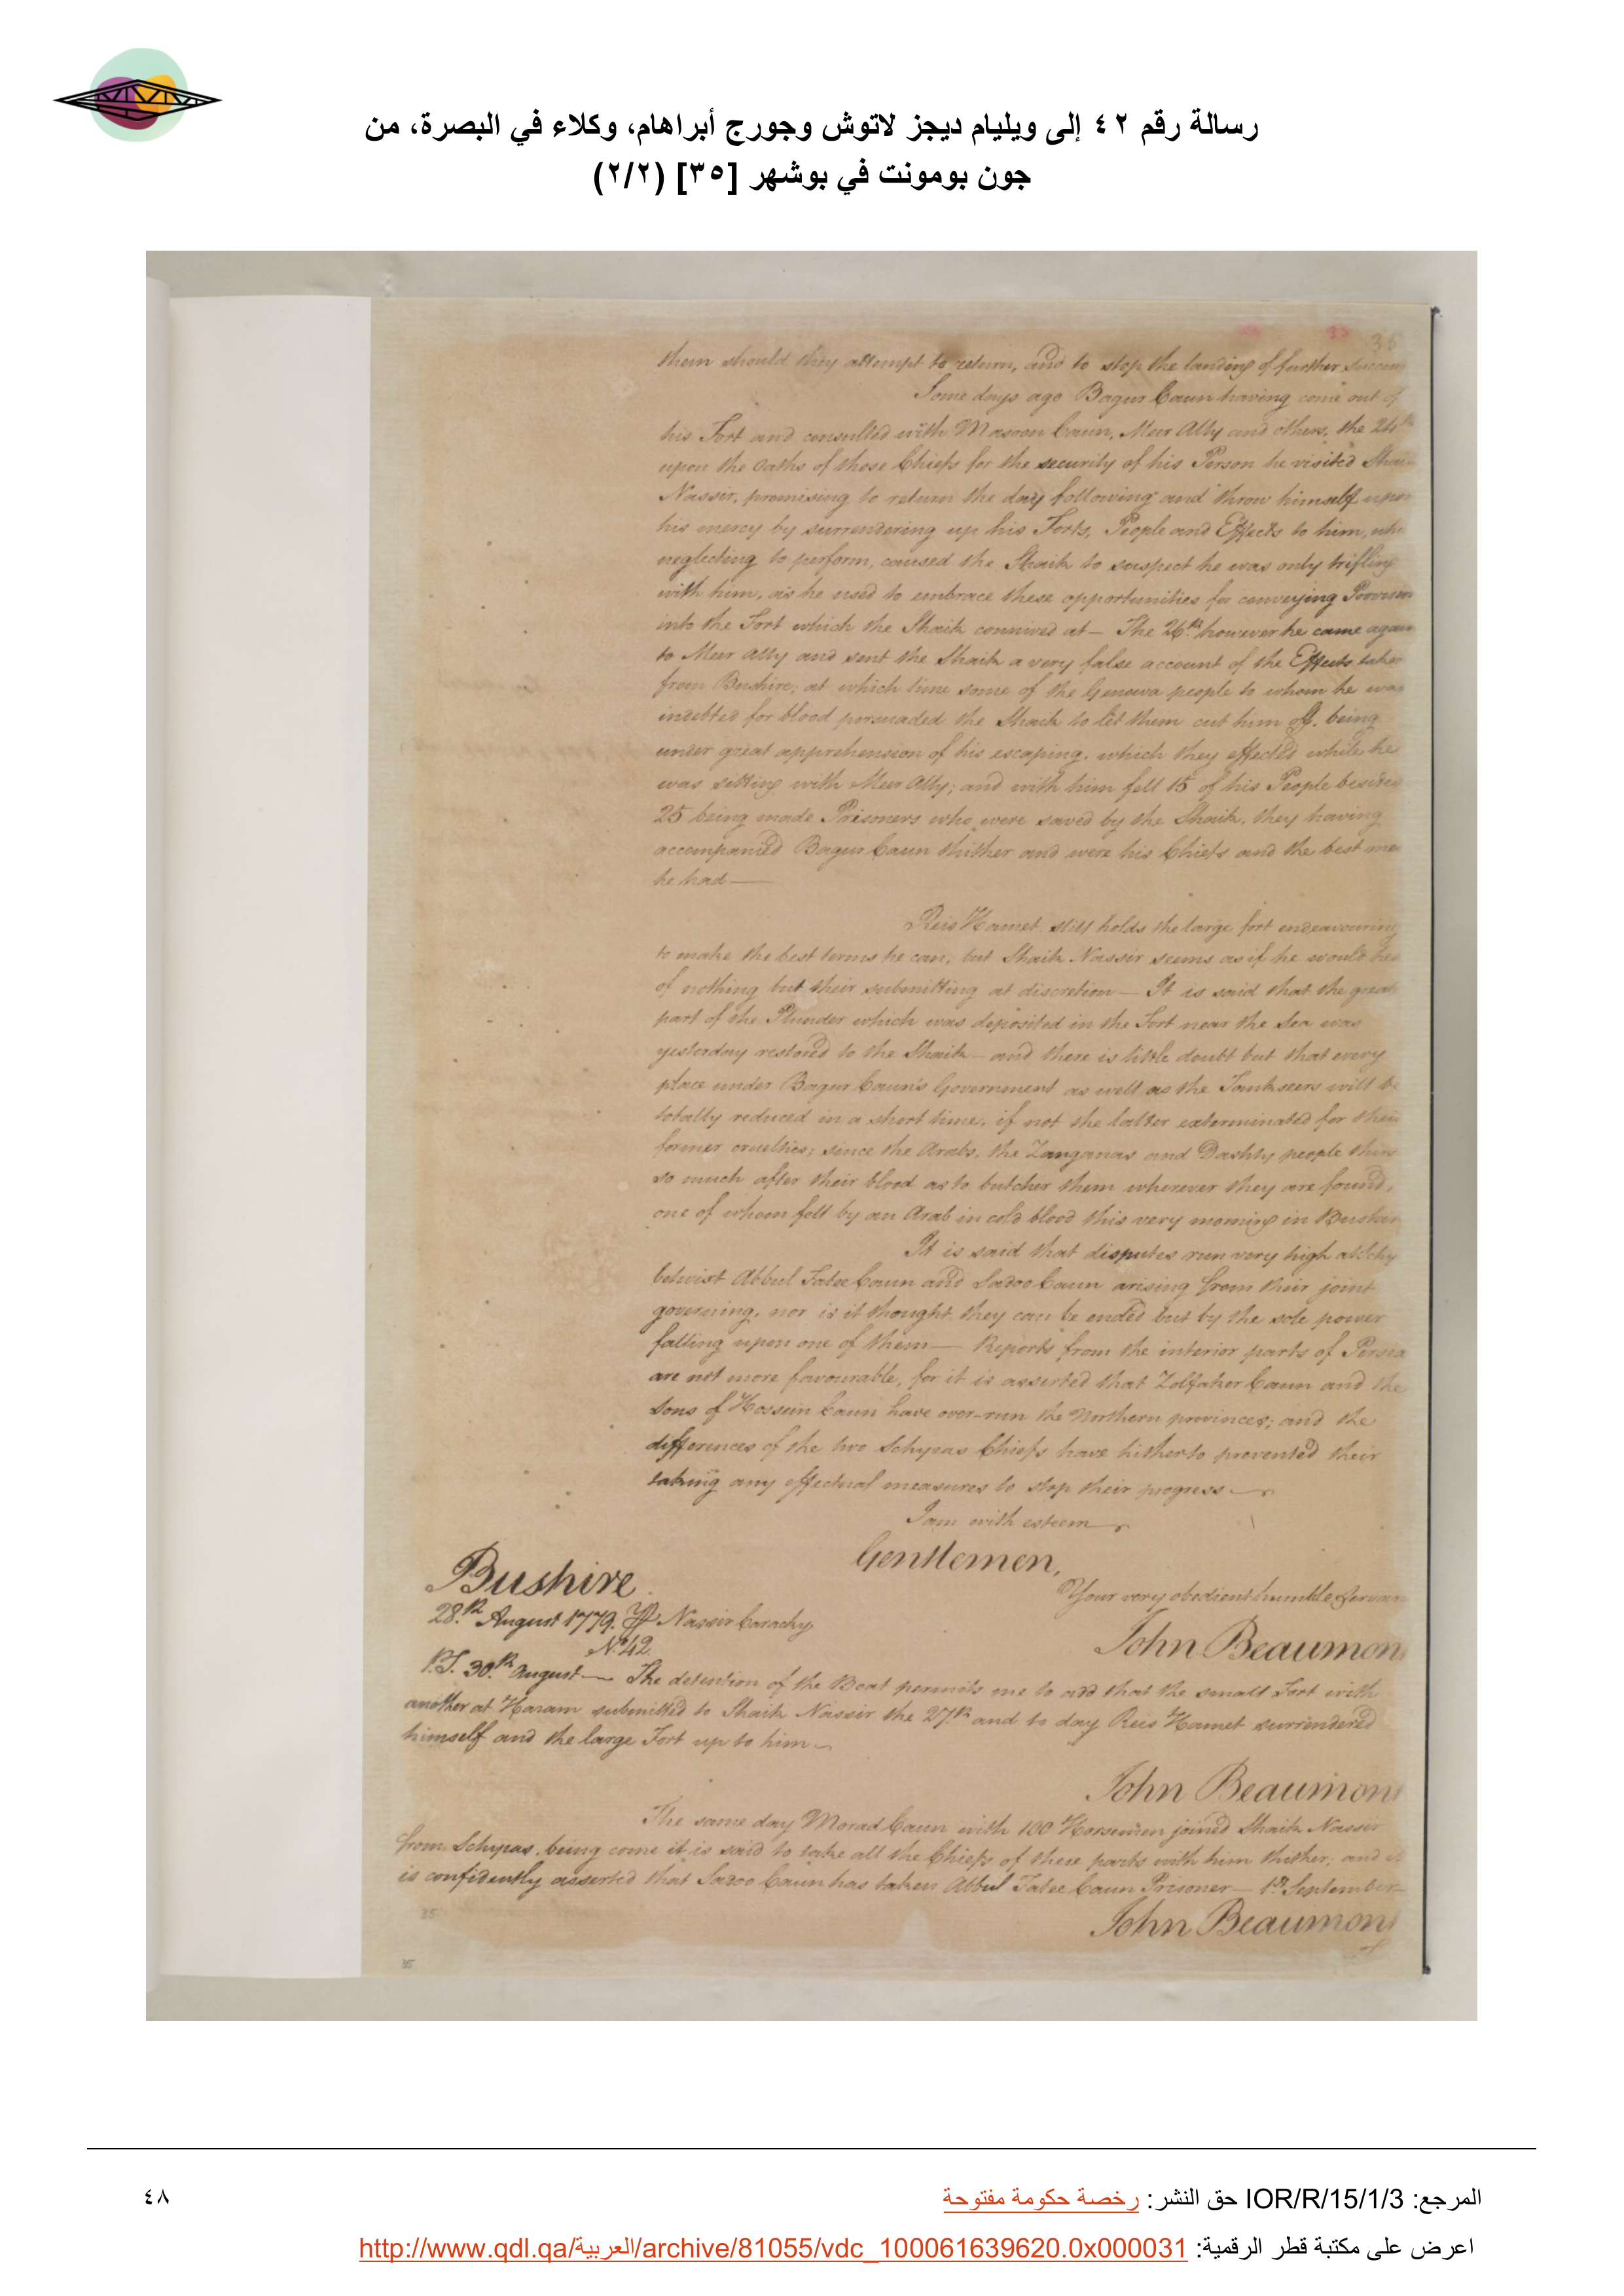 رسالة رقم ٤٢ إلى ويليام ديجز لاتوش وجورج أبراهام، وكلاء في البصرة، من
جون بومونت في بوشهر [٣٥] (٢/٢)
35
them should they attempt to return, and to stop the landing of further
Some days ago Bagur Caun having come out of
his Fort and consulted with Masoon Caun, Meer Ally and others, the 24th
upon the oaths of those Chiefs for the security of his Person he visited Shaik
Nassir, promising to return the day following and throw himself upon
his mercy by surrendering up his Forts, People and Effects to him,
neglecting to perform, caused the Shaik to suspect he was only trifling
with him, as he used to embrace these opportunities for conveying
into the Fort which the Shaik connived at— The 26th however he came again
to Meer Ally and sent the Shaik a very false account of the Effects taken
from Bushire; at which time some of the Genowa people to whom he was
indebted for blood persuaded the Shaik to let them cut him off, being
under great apprehension of his escaping, which they effected while he
was sitting with Meer Ally; and with him fell 15 of his People besides
25 being made Prisoners who were saved by the Shaik, they having
accompanied Bagur Caun thither and were his Chiefs and the best men
he had—
Reis Hamet still holds the large fort endeavouring
to make the best terms he can, but Shaik Nassir seems as if he would
of nothing but their submitting at discretion— It is said that the great
part of the Plunder which was deposited in the Fort near the Sea was
yesterday restored to the Shaik— and there is little doubt but that every
place under Bagur Caun's Government as well as the Tankseers will be
totally reduced in a short time, if not the latter exterminated for their
former cruelties; since the Arabs, the Zanganas and Dashty people
so much after their blood as to butcher them wherever they are found,
one of whom fell by an Arab in cold blood this very morning in
It is said that disputes run very high at
betwixt Abbul Fatee Caun and Sadoo Caun arising from their joint
governing, nor is it thought they can be ended but by the sole power
falling upon one of them— Reports from the interior parts of Persia
are not more favourable, for it is asserted that Zolfaker Caun and the
sons of Hossein Caun have over-run the Northern provinces; and the
differences of the two Schyras Chiefs have hitherto prevented their
taking any effectual measures to stop their progress—
I am with esteem
Gentlemen,
Your very obedient humble Servan
Bushire.
28th August 1779. Nassir Carachy
John Beaumon
No. 42.
P.S. 30th August— The detention of the Boat permits me to add that the small Fort with
another at Haram submitted to Shaik Nassir the 27th and to day Reis Hamet surrendered
himself and the large Fort up to him—
John Beaumont
The same day Morad Caun with 100 Horsemen joined Shaik Nassir
from Schyras, being come it is said to take all the Chiefs of these parts with him thither; and it
is confidently asserted that Sadoo Caun has taken Abbul Fatee Caun Prisoner— 1st September—
John Beaumont
35
35
المرجع: IOR/R/15/1/3 حق النشر: رخصة حكومة مفتوحة
٤٨
اعرض على مكتبة قطر الرقمية: http://www.qdl.qa/العربية/archive/81055/vdc_100061639620.0x000031